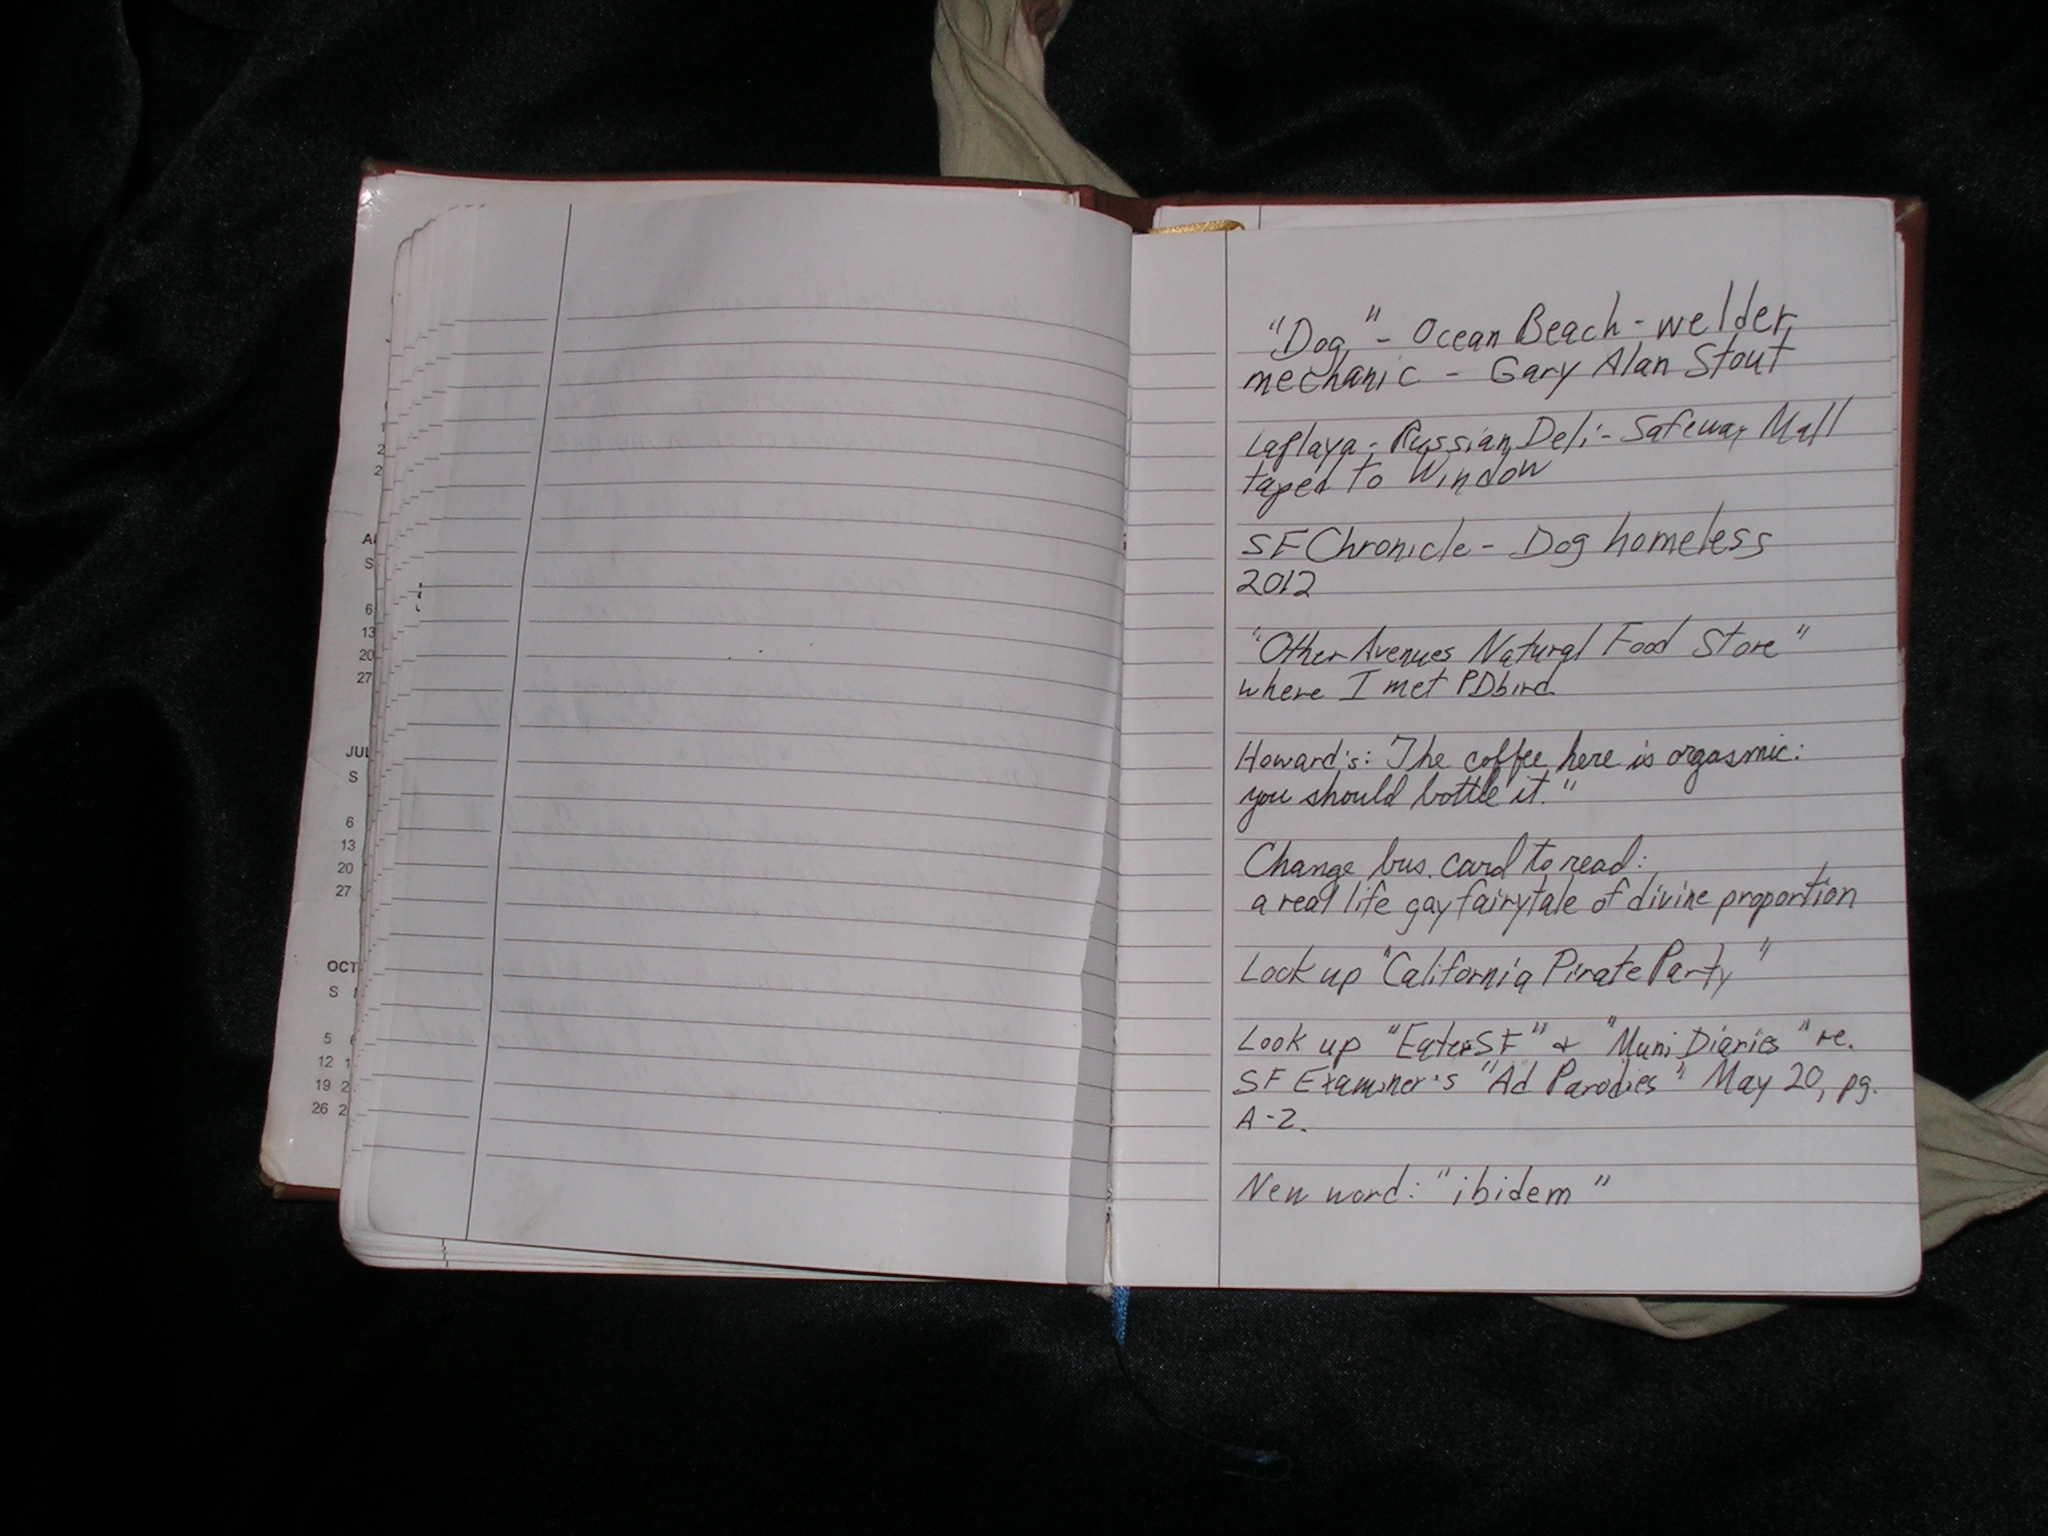 "Dog," - Ocean Beach - welder,
mechanic - Gary Alan Stout
LaPlaya - Russian Deli - Safeway Mall
taped to Window
SF Chronicle - Dog homeless
2012
"Other Avenues Natural Food Store"
where I met PDbird
Howard's: The coffee here is orgasmic:
you should bottle it."
Change bus. card to read:
a real life gay fairytale of divine proportion
Look up "California Pirate Party"
Look up "EaterSF" & "Muni Diaries" re.
SF Examiner's "Ad Parodies" May 20, pg.
A-2.
New word: "ibidem"
S
6
13
20
27
JUL
S
6
13
20
27
OCT
S
5
12
19
26